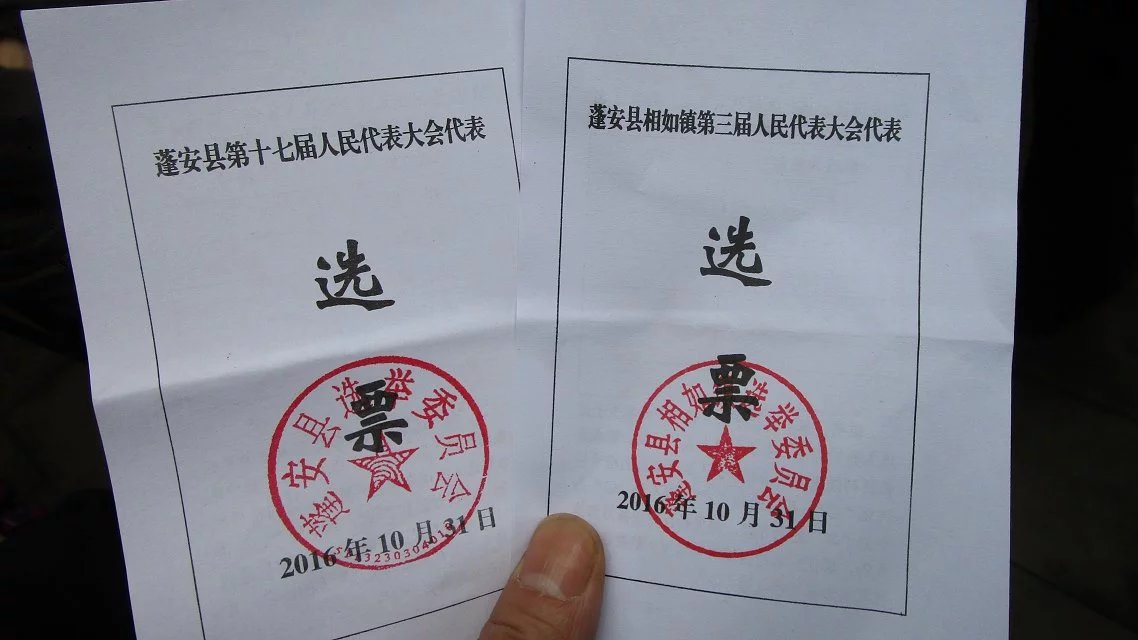 蓬安县第十七届人民代表大会代表
选
票
蓬安县选举委员会
2016年10月31日
蓬安县相如镇第三届人民代表大会代表
选
票
蓬安县相如镇选举委员会
2016年10月31日